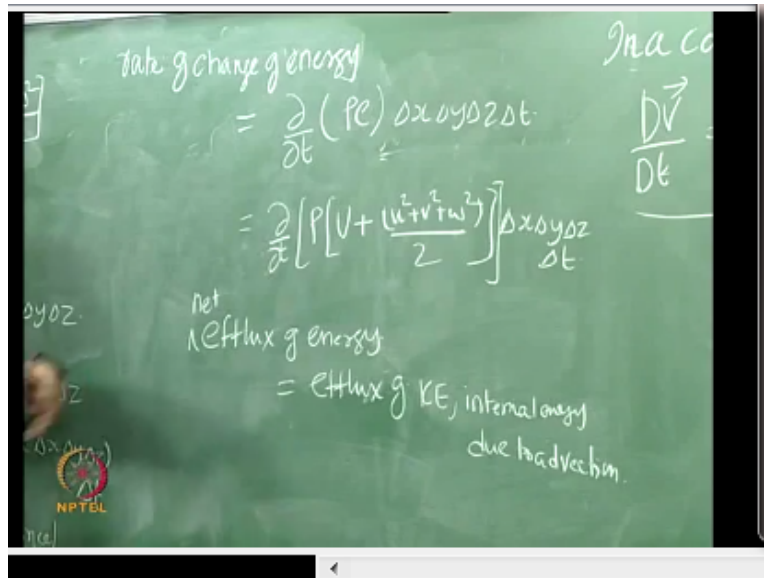 rate of change of energy
= ∂/∂t (ρe) Δx Δy Δz Δt
= ∂/∂t [ρ[U + (u²+v²+w²)/2]] Δx Δy Δz
Δt
net
efflux of energy
= efflux of KE, internal energy
due to advection.
In a co
DV⃗/Dt =
ΔyΔz
NPTEL